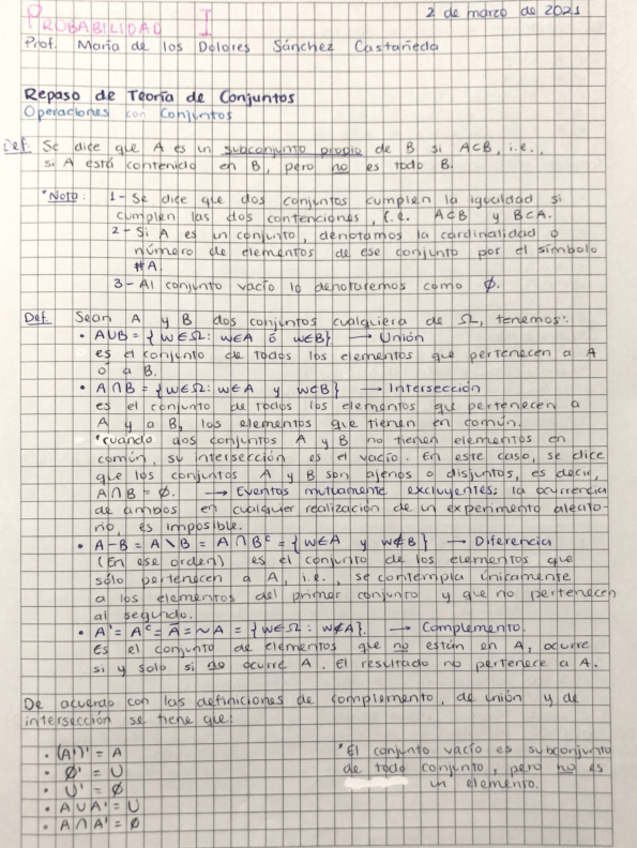 PROBABILIDAD I
2 de marzo de 2021
Prof. María de los Dolores Sánchez Castañeda
Repaso de Teoría de Conjuntos
Operaciones con Conjuntos
Def. Se dice que A es un subconjunto propio de B si A⊂B, i.e.,
si A está contenido en B, pero no es todo B.
*Nota: 1- Se dice que dos conjuntos cumplen la igualdad si
cumplen las dos contenciones, i.e. A⊂B y B⊂A.
2- Si A es un conjunto, denotamos la cardinalidad o
número de elementos de ese conjunto por el símbolo
#A.
3- Al conjunto vacío lo denotaremos como ∅.
Def. Sean A y B dos conjuntos cualquiera de Ω, tenemos:
• A∪B = {w∈Ω: w∈A ó w∈B} → Unión
es el conjunto de todos los elementos que pertenecen a A
ó a B.
• A∩B = {w∈Ω: w∈A y w∈B} → Intersección
es el conjunto de todos los elementos que pertenecen a
A y a B, los elementos que tienen en común.
*cuando dos conjuntos A y B no tienen elementos en
común, su intersección es el vacío. En este caso, se dice
que los conjuntos A y B son ajenos o disjuntos, es decir,
A∩B = ∅. → Eventos mutuamente excluyentes: la ocurrencia
de ambos en cualquier realización de un experimento aleato-
rio, es imposible.
• A-B = A\B = A∩Bᶜ = {w∈A y w∉B} → Diferencia
(En ese orden) es el conjunto de los elementos que
sólo pertenecen a A, i.e., se contempla únicamente
a los elementos del primer conjunto y que no pertenecen
al segundo.
• A' = Aᶜ = Ā = ~A = {w∈Ω: w∉A}. → Complemento.
Es el conjunto de elementos que no están en A, ocurre
si y solo si no ocurre A. El resultado no pertenece a A.
De acuerdo con las definiciones de complemento, de unión y de
intersección se tiene que:
• (A')' = A
• ∅' = U
• U' = ∅
• A∪A' = U
• A∩A' = ∅
*El conjunto vacío es subconjunto
de todo conjunto, pero no es
un elemento.